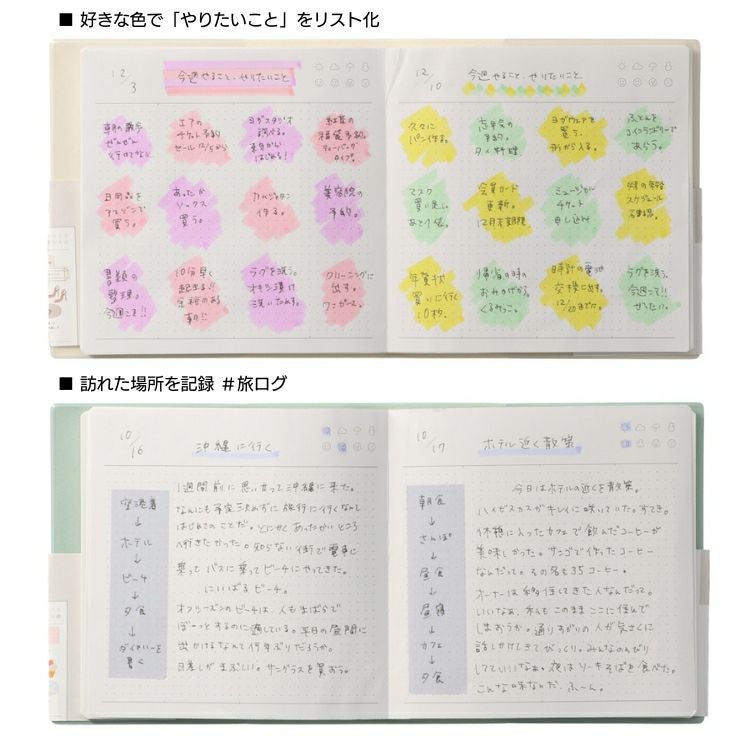 ■ 好きな色で「やりたいこと」をリスト化
12/3
今週やること、やりたいこと
朝の散歩
ぜんぜん
行けてない
エアの
チケット予約
セール12/5から
ヨガスタジオ
調べる。
東分かい
はじめる!
紅葉の
ティーバッグ
タイプ。
日用品を
アマゾンで
買う。
あったか
ソックス
買う。
カレンダー
作る。
美容院の
予約。
書類の
整理。
今週こそ!!
10分早く
起きる!!
余裕のある
朝に
ラグを洗う。
オキシ漬け
洗いたおす。
クリーニングに
出す。
ワンピース
12/10
今週やること、やりたいこと
久々に
パン作る。
忘年会の
予約。
タイ料理
ヨガウェアを
買う。
形から入る。
ふとんを
コインランドリーで
あらう。
マスク
買い足し。
あと1体。
会員カード
更新。
12月末期限
ミュージカル
チケット
申し込み
スケジュール
年賀状
買いに行く
10枚。
帰省の時の
おみやげかう。
くるみっこ。
時計の電池
交換に出す。
12/20までに。
ラグを洗う。
今週こそ!!
ぜったい。
■ 訪れた場所を記録 #旅ログ
10/16
沖縄に行く
空港着
↓
ホテル
↓
ビーチ
↓
夕食
↓
ダイアリーを
書く
1週間前に思い立って沖縄に来た。
なんにも予定決めずに旅行に行くなんて
はじめてのことだ。とにかくあったかいところ
へ行きたかった。知らない街で電車に
乗ってバスに乗ってビーチにやってきた。
にいばるビーチ。
オフシーズンのビーチは、人もまばらで
ぼーっとするのに適している。平日の昼間に
出かけるなんて何年ぶりだろうか。
日差しがまぶしい。サングラスを買おう。
10/17
ホテル近く散策
朝食
↓
さんぽ
↓
昼食
↓
昼寝
↓
カフェ
↓
夕食
今日はホテルの近くを散策。
ハイビスカスがキレイに咲いていた。すてき。
休憩に入ったカフェで飲んだコーヒーが
美味しかった。サンゴで作ったコーヒー
なんだって。その名も35コーヒー。
オーナーは移住してきた人なんだって。
いいなぁ、私もこのままここに住んで
しまおうか。通りすがりの人が気さくに
話しかけてきてびっくり。みんなのんびり
していていいなぁ。夜はソーキそばを食べた。
こんな味なんだ、ふーん。